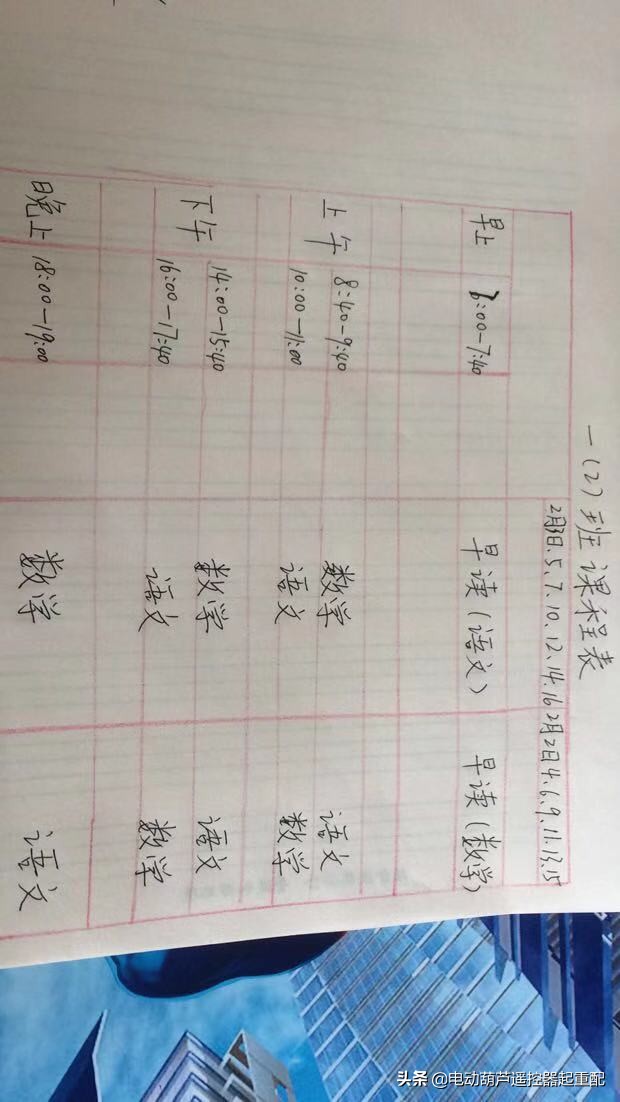 一(2)班课程表
2月3日.5、7、10、12、14、16 2月2日4、6、9、11、13、15
早上 7:00-7:40 早读(语文) 早读(数学)
上午 8:40-9:40 数学 语文
10:00-11:00 语文 数学
下午 14:00-15:40 数学 语文
16:00-17:40 语文 数学
晚上 18:00-19:00 数学 语文
头条 @电动葫芦遥控器起重配